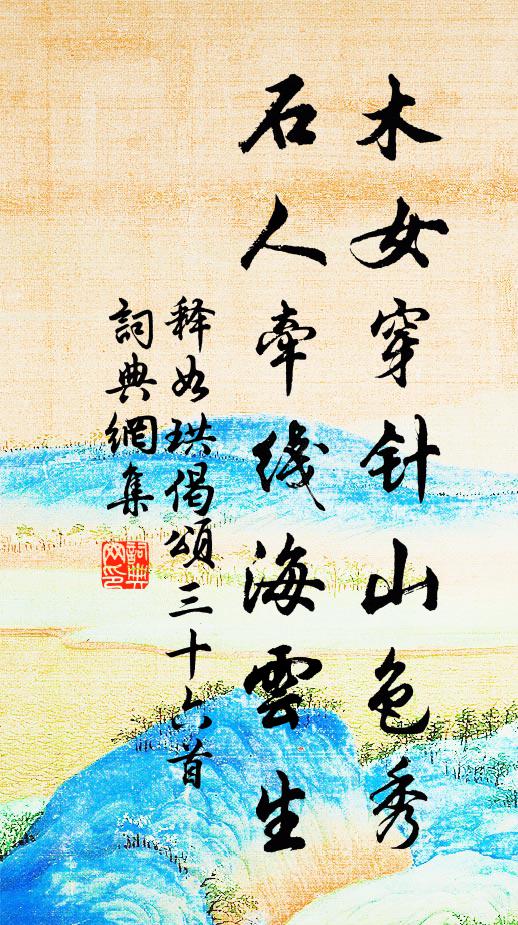 木女穿针山色秀
石人牵线海雲生
释如珙偈頌三十六首
詞典網集
詞典網印